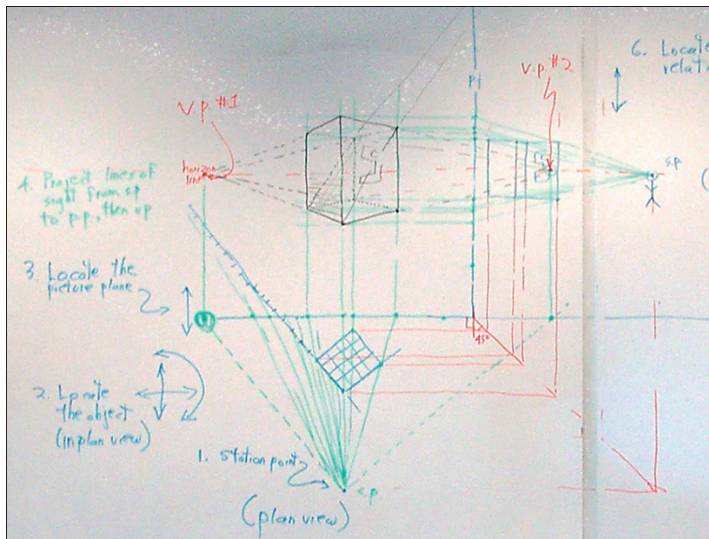 6. Locate
relat
V.P. #2
V.P. #1
PP
horizon
line
s.p.
4. Project lines of
sight from sp
to p.p., then up
3. Locate the
picture plane
45°
2. Locate
the object
(in plan view)
1. Station point
s.p.
(plan view)